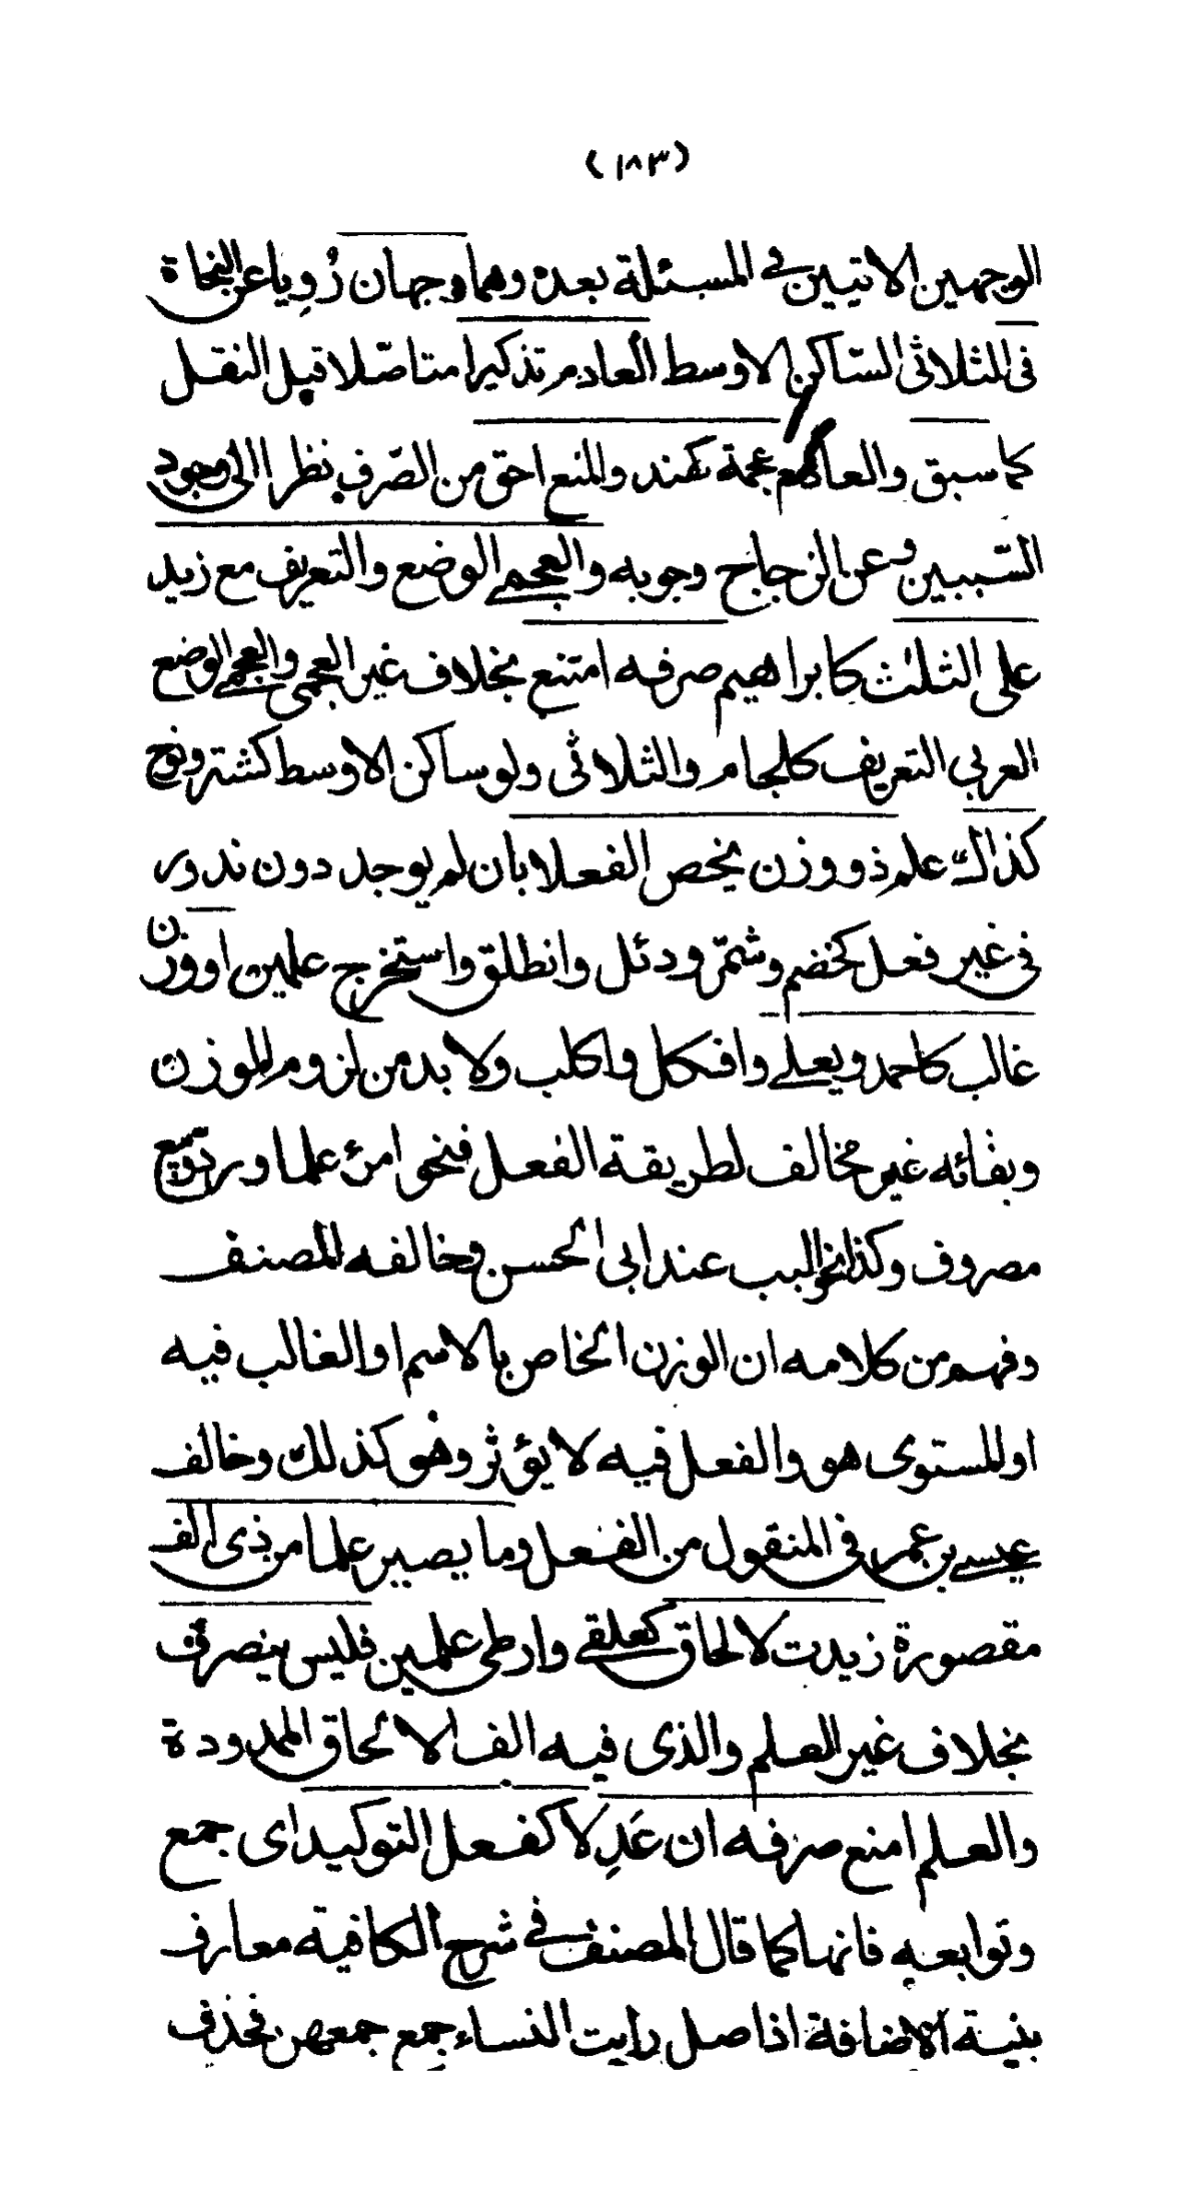 (١٨٣)
الوجهين الاتيين في المسئلة بعده وهما وجهان رُوِيا عن النحاة
فى الثلاثى السّاكن الاوسط العادم تذكيرا متاصّلا قبل النقل
كما سبق والعادم عجمة كهند والمنع احق من الصّرف نظرا الى وجود
السّببين وعن الزجاج وجوبه والعجمى الوضع والتعريف مع زيد
على الثلث كابراهيم صرفه امتنع بخلاف غير العجمى والعجمى الوضع
العربي التعريف كلجام والثلاثى ولو ساكن الاوسط كشتر ونوح
كذاك علم ذو وزن يخص الفعلا بان لم يوجد دون ندور
فى غير فعل كخضم وشمّر ودئل وانطلق واستخرج علمين او وزن
غالب كاحمد ويعلى وافكل واكلب ولا بد من لزوم الوزن
وبقائه غير مخالف لطريقة الفعل فنحو امرئ علما ورد وبيع
مصروف وكذا نحو البب عند ابى الحسن وخالفه المصنف
وفهم من كلامه ان الوزن الخاص بالاسم او الغالب فيه
او المستوى هو والفعل فيه لا يؤثر وهو كذلك وخالف
عيسى بن عمر فى المنقول من الفعل وما يصير علما من ذى الف
مقصورة زيدت لالحاق كعلقى وارطى علمين فليس ينصرف
بخلاف غير العلم والذى فيه الف الالحاق الممدودة
والعلم امنع صرفه ان عَدِلا كفعل التوكيد اى جمع
وتوابعه فانها كما قال المصنف في شرح الكافية معارف
بنية الاضافة اذ اصل رايت النساء جمع جمعهن فحذف